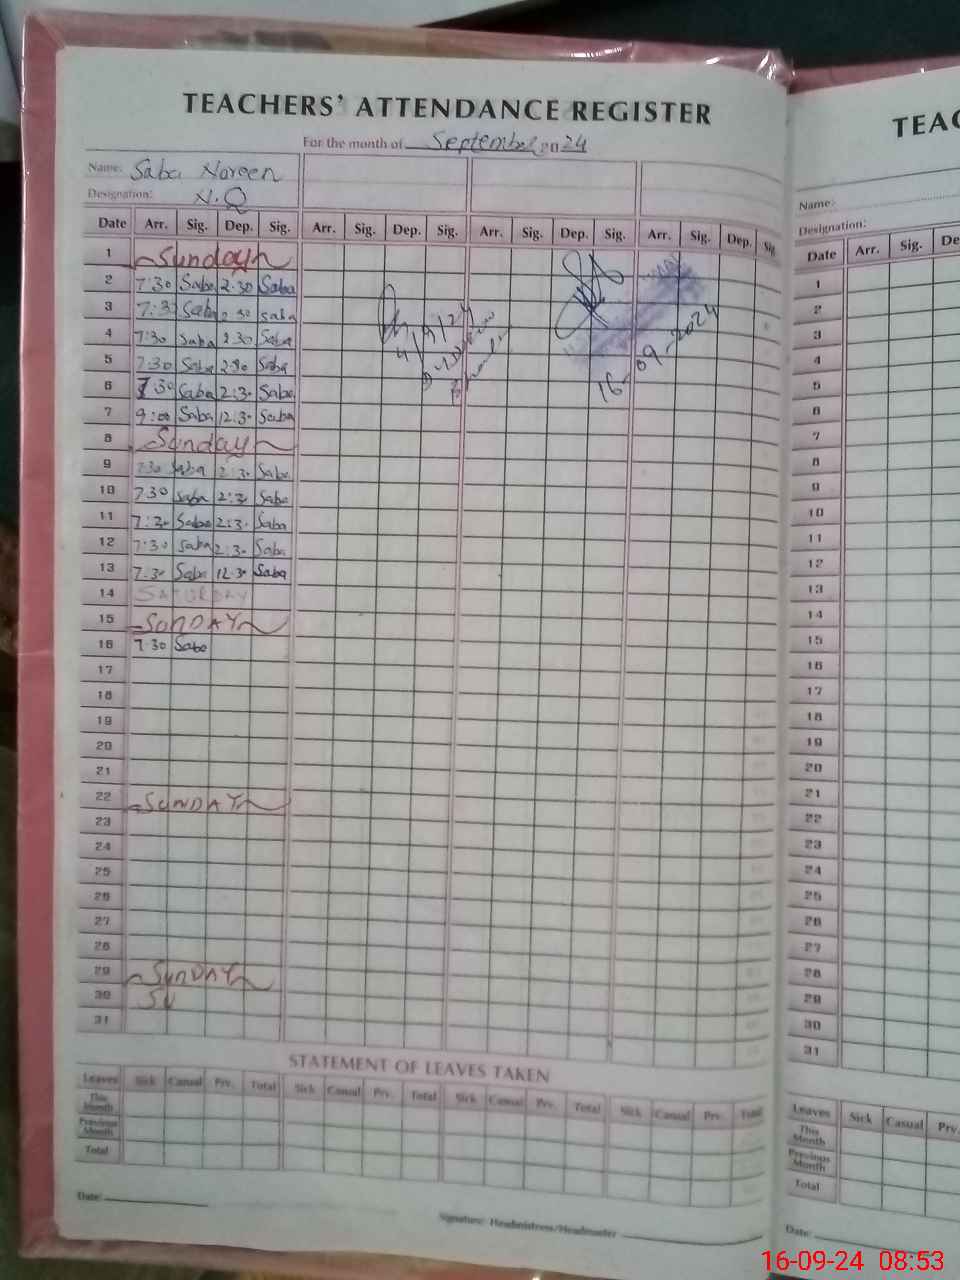 TEACHERS' ATTENDANCE REGISTER
For the month of September 2024
Name: Saba Noreen
Designation: N.Q
Date Arr. Sig. Dep. Sig. Arr. Sig. Dep. Sig. Arr. Sig. Dep. Sig. Arr. Sig. Dep. Sig.
1 Sunday
2 7:30 Saba 2.30 Saba
3 7:3 Saba 2.30 Saba
4 7:30 Saba 2.30 Saba
5 7:30 Saba 2:30 Saba
6 7:30 Saba 2:3. Saba
7 9:00 Saba 12.3. Saba
8 Sunday
9 7:30 Saba 2:3. Saba
10 7.30 Saba 2:3. Saba
11 7:3. Saba 2:3. Saba
12 7:30 Saba 2:3. Saba
13 7:3. Saba 12.3. Saba
14 SATURDAY
15 SUNDAY
16 7.30 Saba
17
18
19
20
21
22 SUNDAY
23
24
25
26
27
28
29 SUNDAY
30 SU
31
4/9/24
16-09-2024
STATEMENT OF LEAVES TAKEN
Leaves Sick Casual Prv. Total Sick Casual Prv. Total Sick Casual Prv. Total Sick Casual Prv. Total
This Month
Previous Month
Total
Date:
Signature: Headmistress/Headmaster
TEAC
Name:
Designation:
Date Arr. Sig. De
1
2
3
4
5
6
7
8
9
10
11
12
13
14
15
16
17
18
19
20
21
22
23
24
25
26
27
28
29
30
31
Leaves Sick Casual Prv.
This Month
Previous Month
Total
Date:
16-09-24 08:53